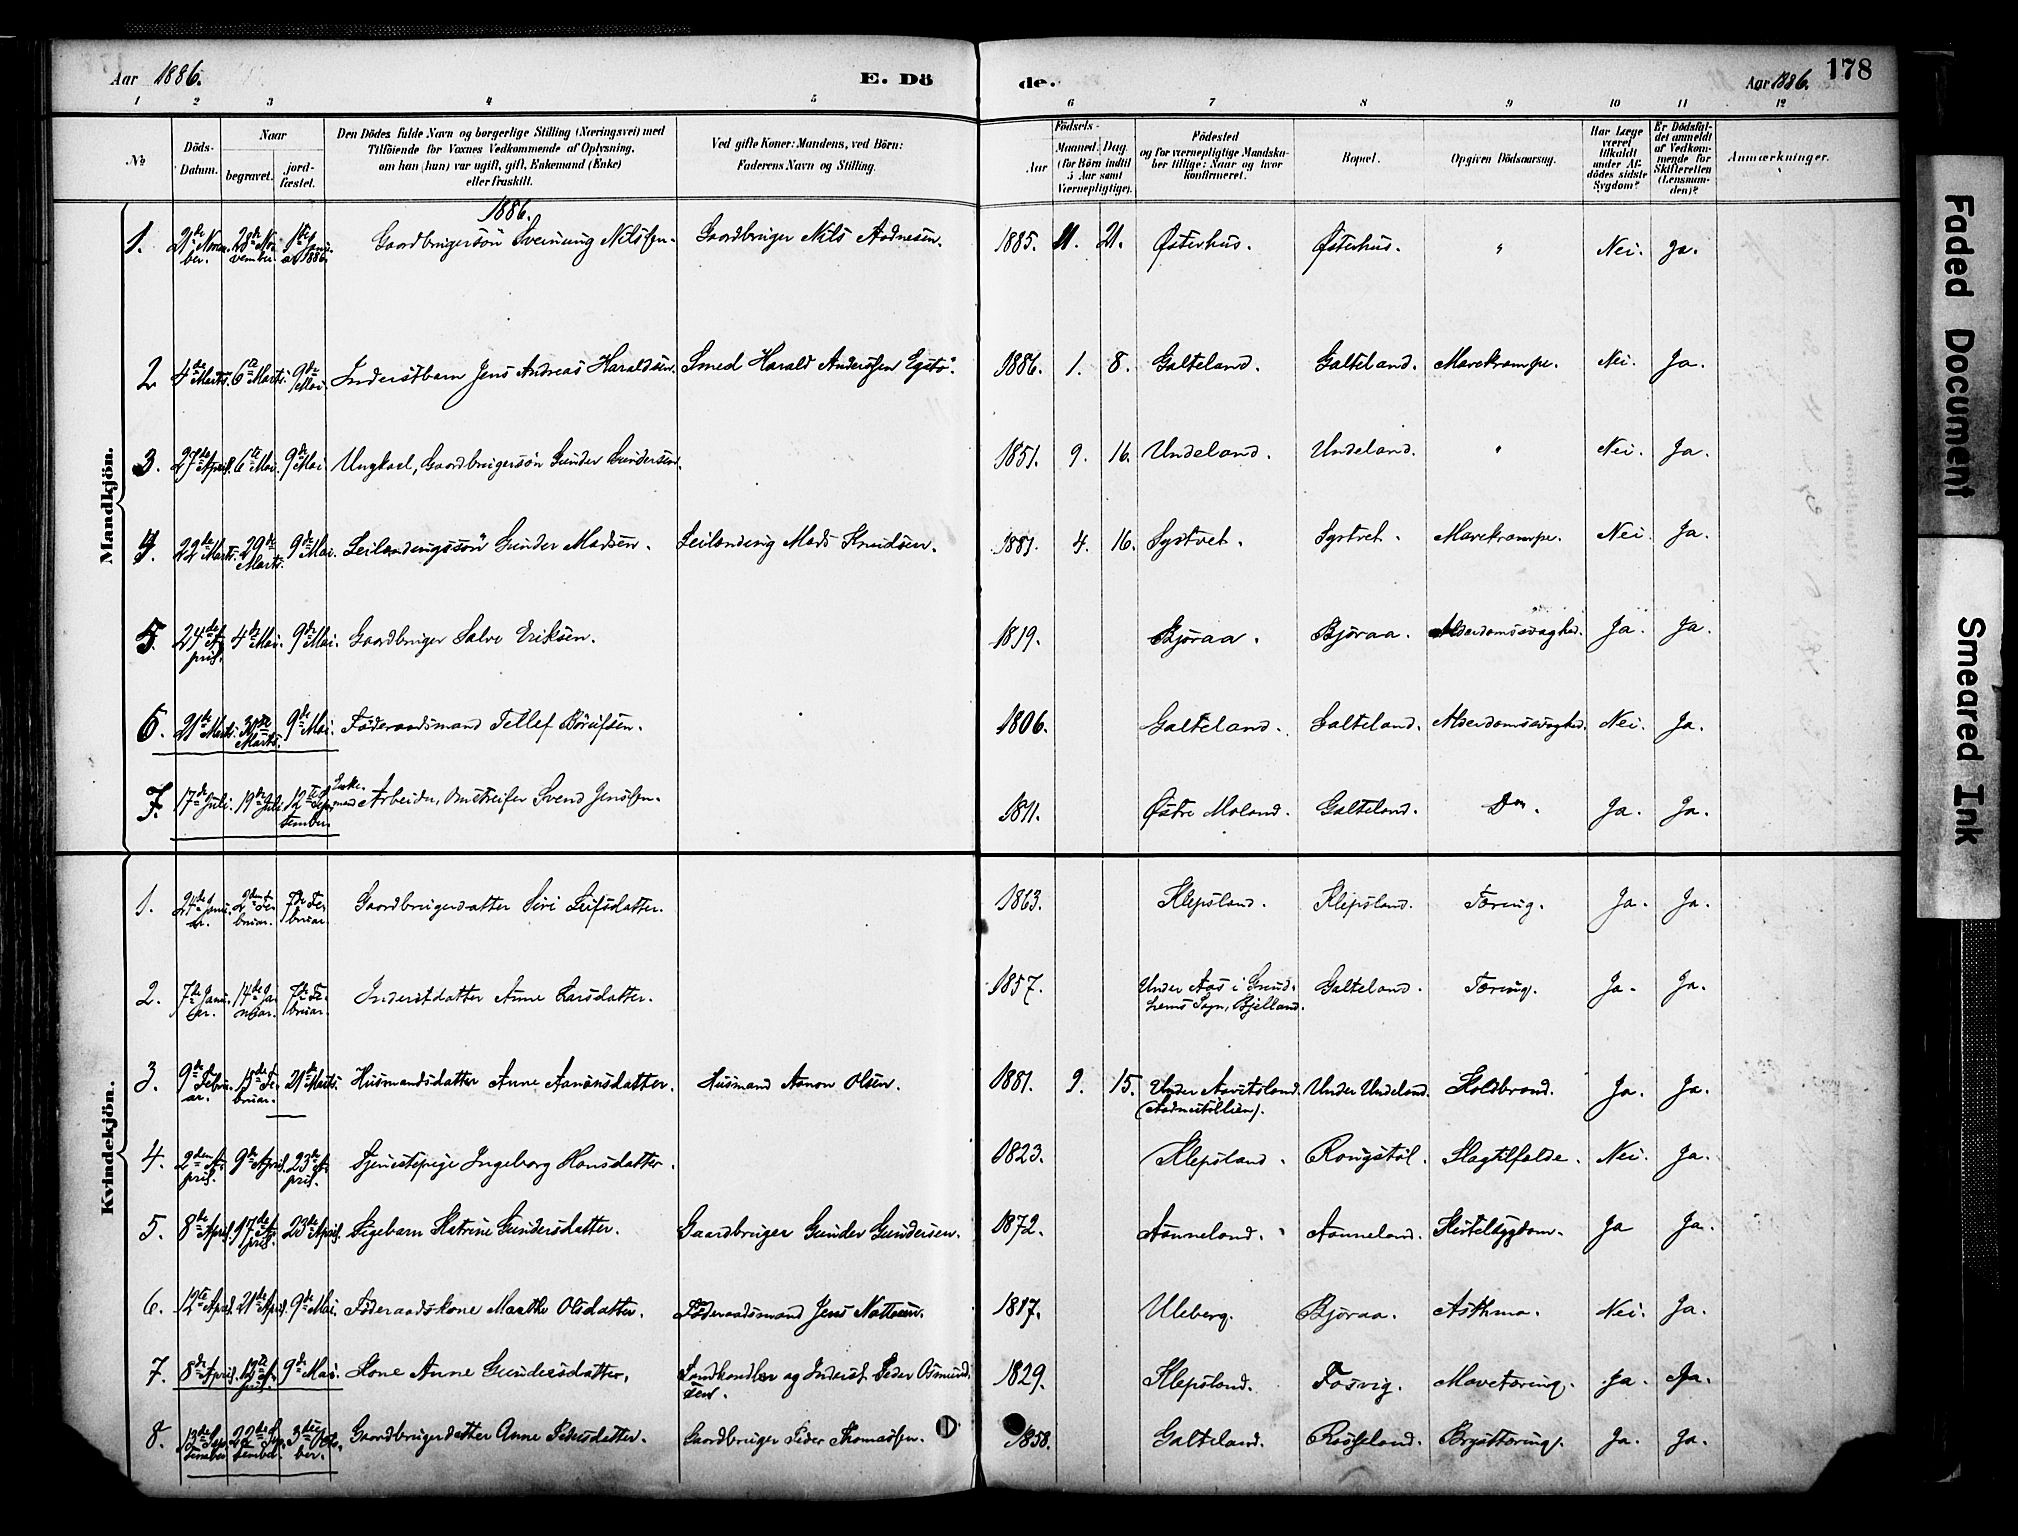 Aar 1886.
E. Dö
de.
Aar 1886.
178
1 2 3 4 5 6 7 8 9 10 11 12
No
Döds-Datum.
Naar
begravet.
jord-fæstet.
Den Dödes fulde Navn og borgerlige Stilling (Næringsvei) med
Tilföiende for Voxnes Vedkommende af Oplysning,
om han (hun) var ugift, gift, Enkemand (Enke)
eller fraskilt.
Ved gifte Koner: Mandens, ved Börn:
Faderens Navn og Stilling.
Födsels-
Aar
Maaned. Dag.
(for Börn indtil
5 Aar samt
Værnepligtige).
Födested
og for værnepligtige Mandska-
ber tillige: Naar og hvor
konfirmeret.
Bopæl.
Opgiven Dödsaarsag.
Har Læge
været
tilkaldt
under Af-
dödes sidste
Sygdom?
Er Dödsfal-
det anmeldt
af Vedkom-
mende for
Skifteretten
(Lensman-
den)?
Anmærkninger.
Mandkjön.
1886.
1. 21de Novem-ber. 28de No-vember. 1ste Janu-ar 1886. Gaardbrugersön Sveinung Nilssen. Gaardbruger Nils Aadnesen. 1885. 11. 21. Østerhus. Østerhus. " Nei. Ja.
2 4de Marts. 6te Marts. 9de Mai. Inderstbarn Jens Andreas Haraldsen. Smed Harald Anderssen Egstö. 1886. 1. 8. Galteland. Galteland. Mavekrampe. Nei. Ja.
3. 27de April. 6te Mai. 9de Mai Ungkael, Gaardbrugersön Gunder Gundersen. 1851. 9. 16. Undeland. Undeland. " Nei. Ja.
4. 22de Marts. 29de Marts. 9de Mai. Leilændingssön Gunder Madsen. Leilænding Mads Knudsen. 1881. 4. 16. Systvet. Systvet. Mavekrampe. Nei Ja.
5. 24de A-pril. 4de Mai. 9de Mai. Gaardbruger Salve Eriksen. 1819. Björaa. Björaa. Alderdomssvaghed. Ja. Ja.
6. 21de Marts. 30te Marts. 9de Mai. Föderaadsmand Tellef Börufsen. 1806. Galteland. Galteland. Alderdomssvaghed. Nei. Ja.
7. 17de Juli. 19de Juli. 12te Sep-tember. Enke-mand Arbeider, Omstreifer Svend Jenssen. 1811. Østre Moland. Galteland. Do. Ja. Ja.
Kvindekjön.
1. 24de Janu-ar. 2den Fe-bruar. 7de Fe-bruar. Gaardbrugerdatter Siri Leifsdatter. 1863. Klepsland. Klepsland. Tæring. Ja. Ja.
2. 7de Janu-ar. 14de Ja-nuar. 7de Fe-bruar. Inderstdatter Anne Larsdatter. 1857. Under Aas i Grind-
hems Sogn, Bjelland. Galteland. Tæring. Ja. Ja.
3. 9de Febru-ar. 15de Fe-bruar. 21de Marts. Husmandsdatter Anne Aanonsdatter. Husmand Aanon Olsen. 1881. 9. 15. Under Aavitsland. Under Undeland. Koldbrand. Ja. Ja.
4. 2den A-pril. 9de April. 23de A-pril. Tjenestepige Ingeborg Hansdatter. 1823. Klepsland. Rongstöl. Slagtilfælde. Nei. Ja.
5. 8de April. 17de A-pril. 23de April. Pigebarn Katrine Gundersdatter. Gaardbruger Gunder Gundersen. 1872. Aanneland. Aanneland. Kirtelsygdom. Ja Ja.
6. 12te April. 21de April. 9de Mai. Föderaadskone Marthe Olsdatter. Föderaadsmand Jens Nottesen. 1817. Uleberg. Björaa. Asthma. Nei. Ja.
7. 8de April. 12te A-pril. 9de Mai. Kone Anne Gundersdatter. Landhandler og Inderst Peder Osmund-
sen. 1829. Klepsland. Fosvig. Mavetæring. Ja. Ja.
8. 13de Sep-tember. 22de Sep-tember. 3die Okto-ber. Gaardbrugerdatter Anne Pedersdatter. Gaardbruger Peder Thomassen. 1858. Galteland. Rosseland. Brysttæring. Ja. Ja.
Faded Document
Smeared Ink